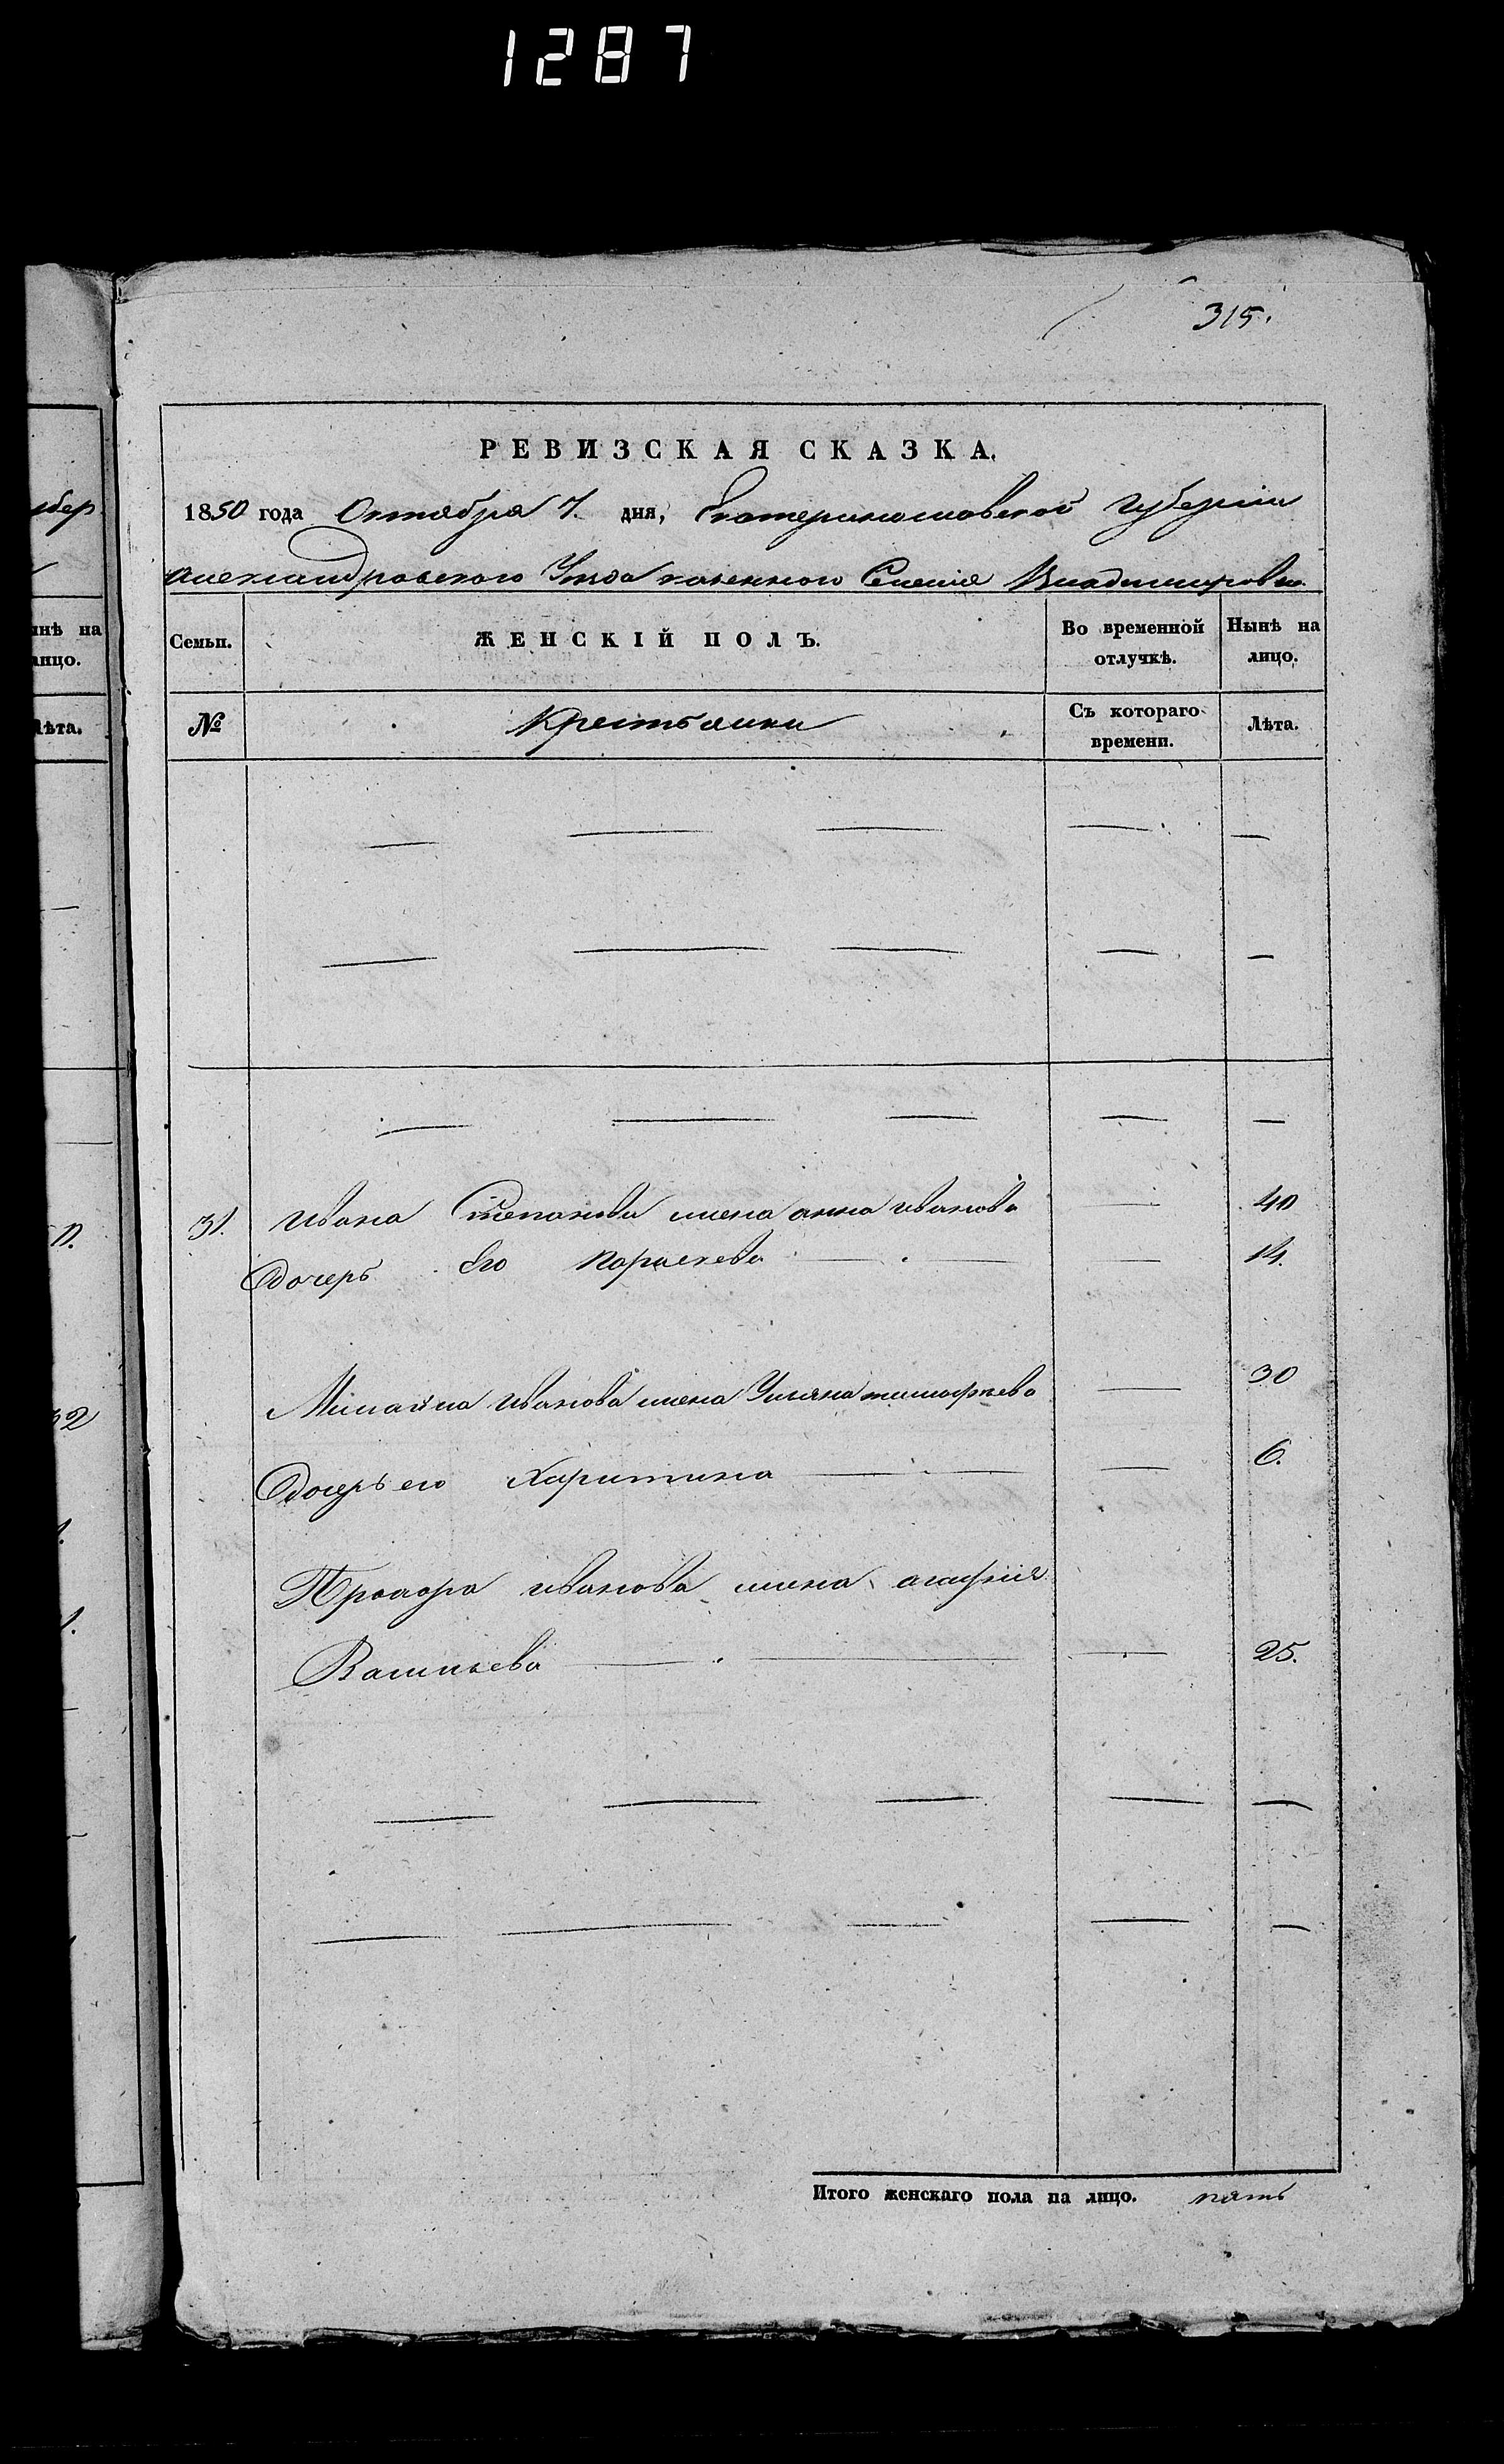 1287
315.
РЕВИЗСКАЯ СКАЗКА.
1850 года Октября 7. дня, Екатеринославской Губерніи
Александровского Уезда казенного Селенія Владимировки
Семьи. ЖЕНСКІЙ ПОЛЪ. Во временной отлучкѣ. Нынѣ на лицо.
№ Крестьянки Съ котораго времени. Лѣта.
31. Ивана Степанова жена анна иванова — 40
дочерь Его Параскева — 14.
Михайла Иванова жена Ульяна тимофеева — 30
дочерь его Харитина — 6.
Прохора иванова жена агафия
Васильева — 25.
Итого женскаго пола на лицо. пять